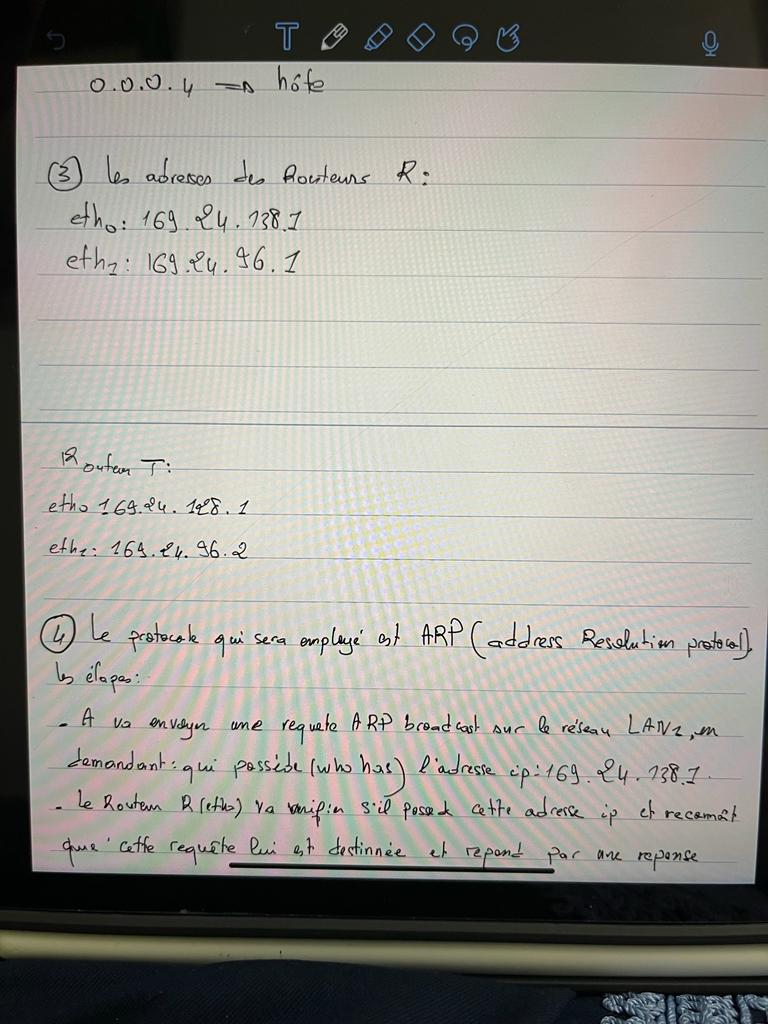 0.0.0.4 => hôte
③ les adresses des Routeurs R:
eth0: 169.24.138.1
eth1: 169.24.96.1
Routeur T:
eth0 169.24.128.1
eth1: 169.24.96.2
④ Le protocole qui sera employé est ARP (address Resolution protocol).
les élapes:
- A va envoyer une requete ARP broadcast sur le réseau LAN2, en
demandant: qui possède (who has) l'adresse ip: 169.24.138.1.
- Le Routeur R (eth0) va verifier s'il posed cette adresse ip et reconnaît
que cette requête lui est destinnée et repond par une reponse